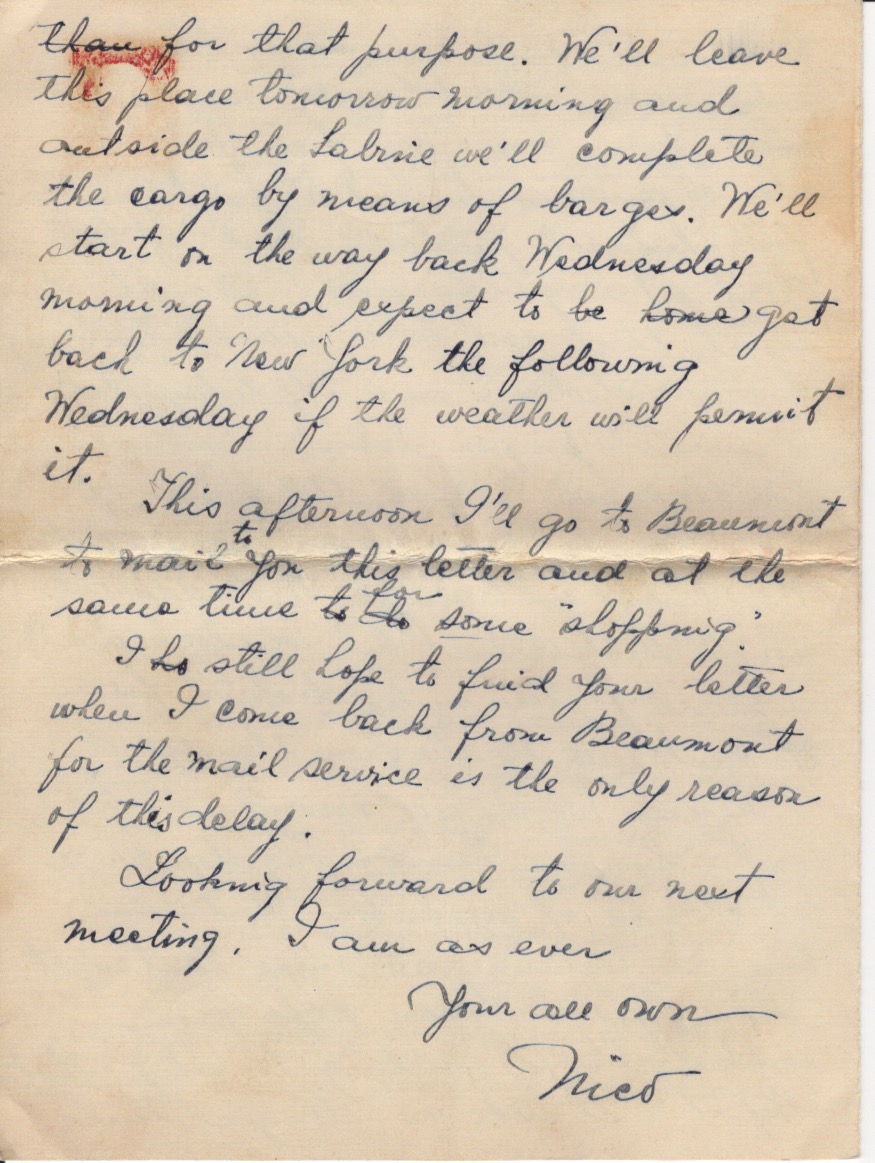 than for that purpose. We'll leave
this place tomorrow morning and
outside the Sabine we'll complete
the cargo by means of barges. We'll
start on the way back Wednesday
morning and expect to be home get
back to New York the following
Wednesday if the weather will permit
it.
This afternoon I'll go to Beaumont
to mail to you this letter and at the
same time to do for some "shopping".
I ho still hope to find your letter
when I come back from Beaumont
for the mail service is the only reason
of this delay.
Looking forward to our next
meeting. I am as ever
Your all own
Nico